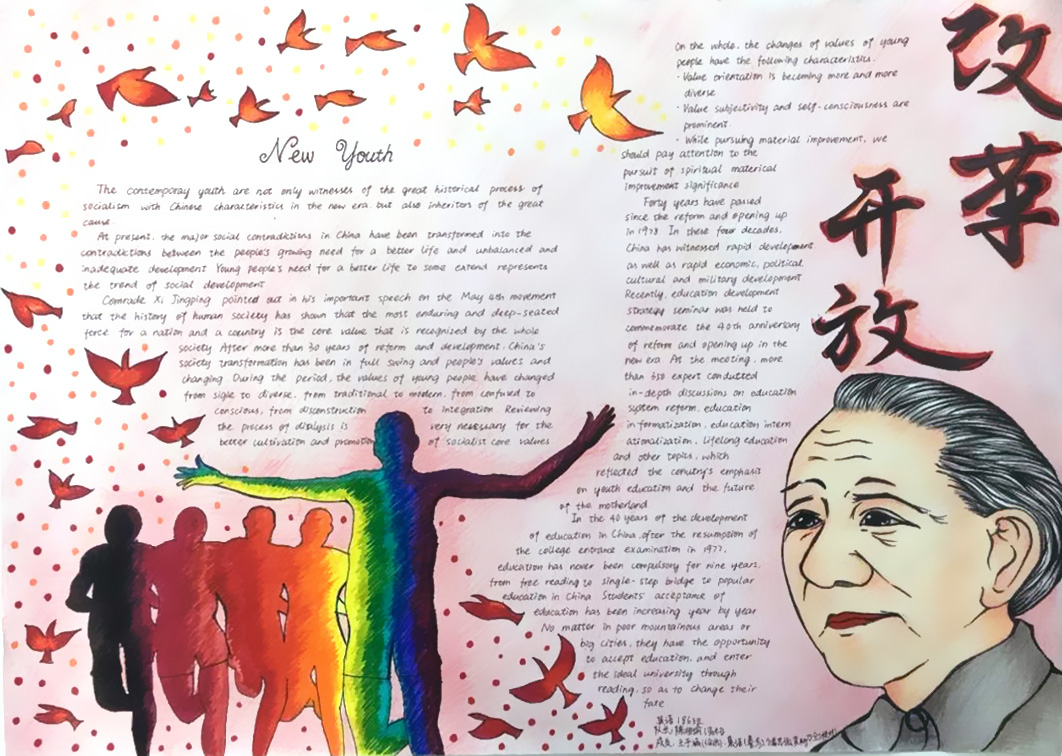 改革
开放
New Youth
The contemporay youth are not only witnesses of the great historical process of
socialism with Chinese characteristics in the new era. but also inheritors of the great
cause.
At present. the major social contradictions in China have been transformed into the
contradictions between the people's growing need for a better life and unbalanced and
inadequate development Young people's need for a better life to some extend represents
the trend of social development
Comrade Xi Jingping pointed out in his important speech on the May 4th movement
that the history of human society has shown that the most enduring and deep-seated
force for a nation and a country is the core value that is recognized by the whole
society After more than 30 years of reform and development. China's
society transformation has been in full swing and people's values and
changing. During the period, the values of young people have changed
from sigle to diverse. from traditional to modern. from confused to
conscious, from disconstruction to integration Reviewing
the process of dialysis is very necessary for the
better cultivation and promotion of socialist core values
On the whole. the changes of values of young
people have the following characteristics.
· Value orientation is becoming more and more
diverse
· Value subjectivity and self-consciousness are
prominent.
· While pursuing material improvement, we
should pay attention to the
pursuit of spiritual materical
improvement significance
Forty years have passed
since the reform and opening up
in 1978 In these four decades.
China has witnessed rapid development
as well as rapid economic, political,
cultural and military development
Recently, education development
strategy seminar was held to
commemorate the 40th anniversary
of reform and opening up in the
new era. At the meeting. more
than 650 expert conducted
in-depth discussions on education
system reform. education
in formatization. education intern
ationalization. lifelong education
and other topics, which
reflected the conutry's emphasis
on youth education and the future
of the motherland
In the 40 years of the development
of education in China. after the resumption of
the college entrance examination in 1977.
education has never been compulsory for nine years.
from free reading to single-step bridge to popular
education in China Students' acceptance of
education has been increasing year by year
No matter in poor mountainous areas or
big cities, they have the opportunity
to accept education. and enter
the ideal university through
reading, so as to change their
fate
英语1863班